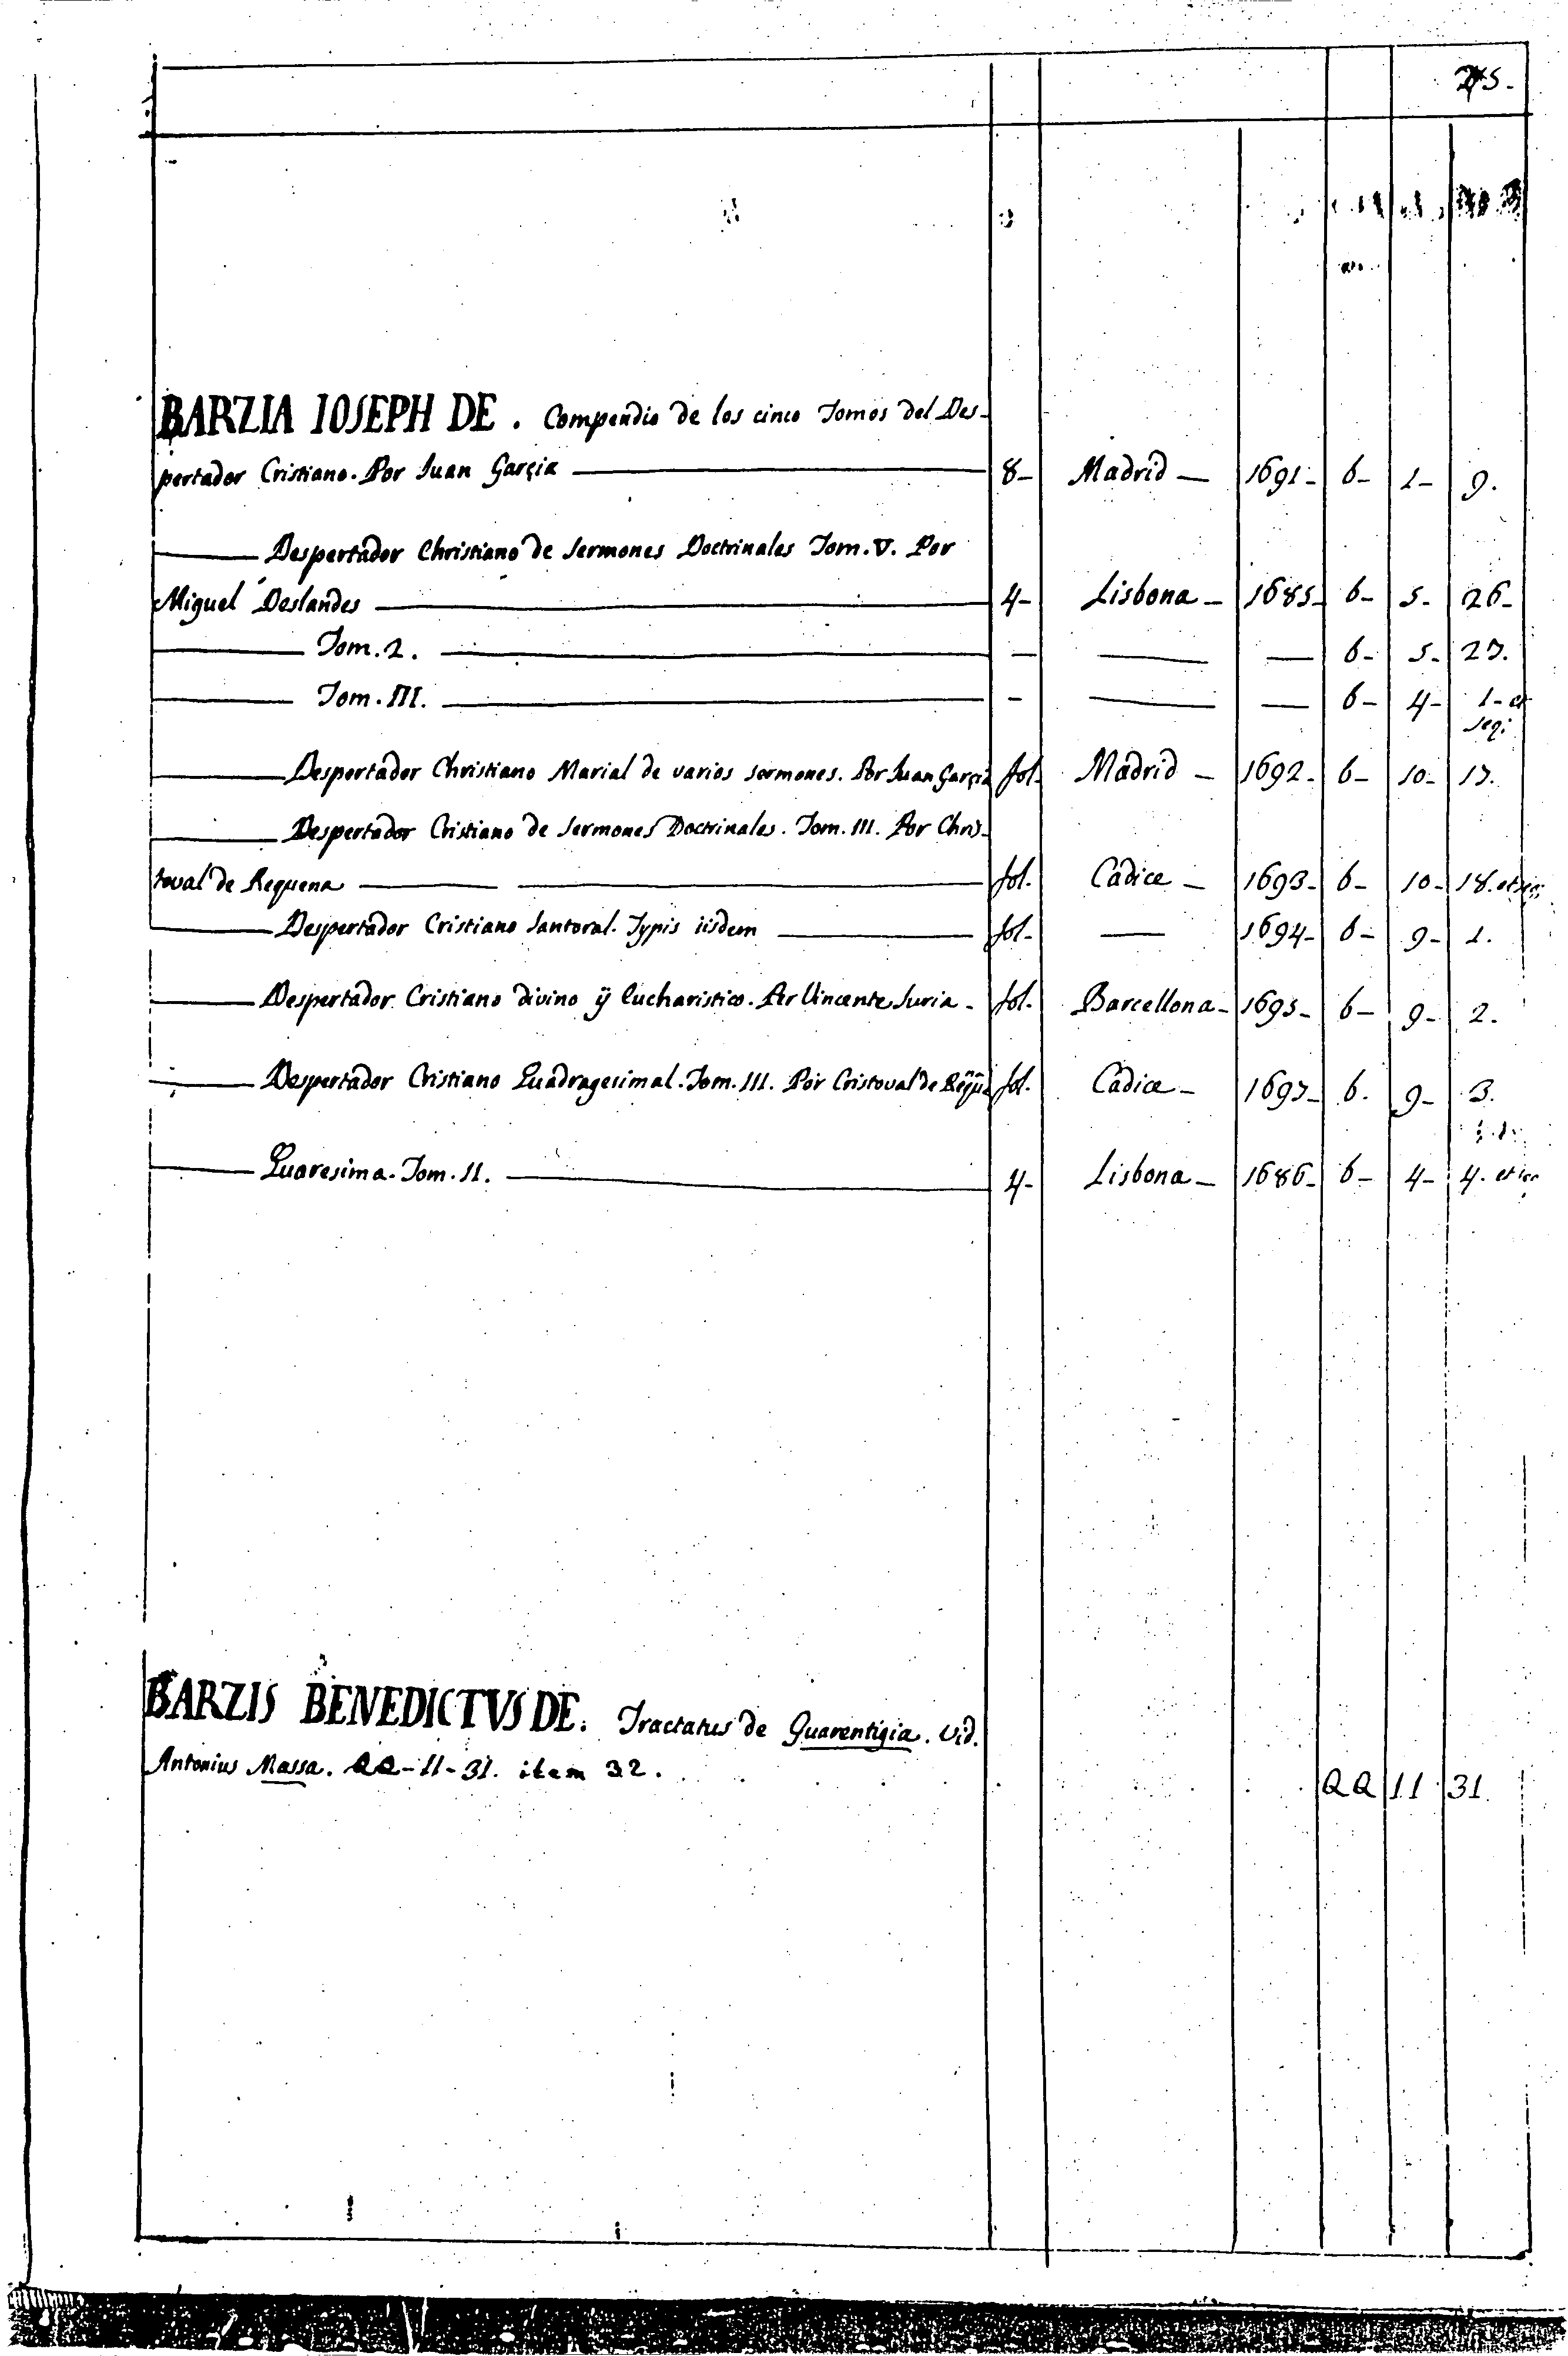 BARZIA IOSEPH DE. Compendio de los cinco Tomos del Des-
pertador Cristiano. Por Juan Garçia 8- Madrid 1691- 6- 1- 9.
Despertador Christiano de Sermones Doctrinales Tom. V. Por
Miguel Deslandes 4- Lisbona 1685- 6- 5- 26-
Tom. 2. 6- 5- 27.
Tom. III. 6- 4- 1- et
seq:
Despertador Christiano Marial de varios sermones. Por Juan Garçia fol. Madrid 1692- 6- 10- 17.
Despertador Cristiano de Sermones Doctrinales. Tom. III. Por Chris-
toval de Requena fol. Cadice 1693- 6- 10- 18. et seq:
Despertador Cristiano Santoral. Typis iisdem fol. 1694- 6- 9- 1.
Despertador Cristiano divino ÿ Eucharistico. Por Vincente Suria fol. Barcellona 1695- 6- 9- 2.
Despertador Cristiano Quadragesimal. Tom. III. Por Cristoval de fol. Cadice 1697- 6. 9- 3.
Quaresima. Tom. II. 4- Lisbona 1686- 6- 4- 4. et
BARZIS BENEDICTVS DE. Tractatus de Guarentigia. Vid.
Antonius Massa. QQ-11-31. item 32.
QQ 11 31